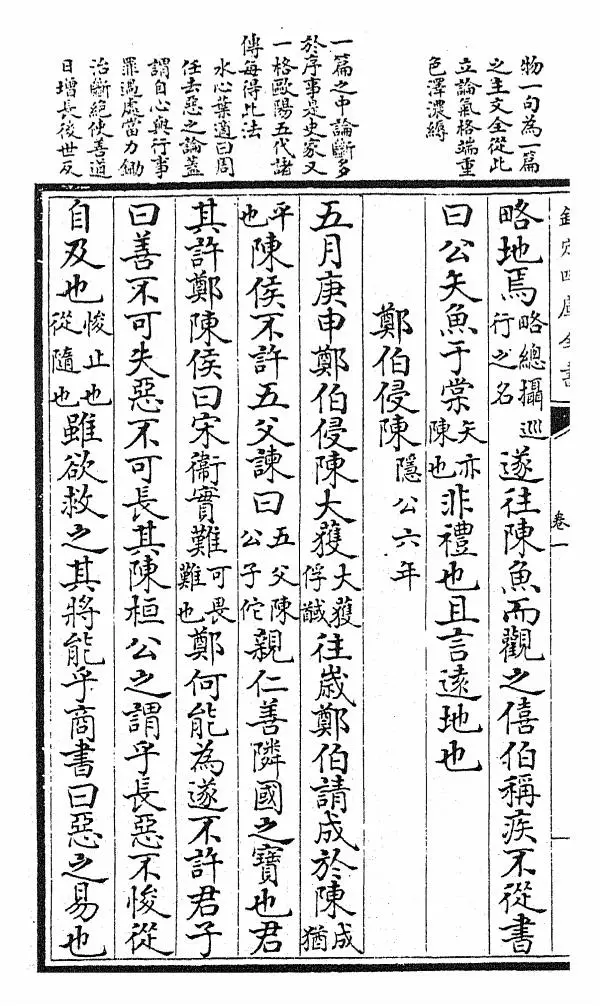 物一句為一篇
之主文全從此
立論氣格端重
色澤濃縟
一篇之中論斷多
於序事是史家又
一格歐陽五代諸
傳每得此法
水心葉適曰周
任去惡之論蓋
謂自心與行事
罪過處當力鋤
治斷絕使善道
日增長後世反
欽定四庫全書 卷一
略地焉略總攝巡行之名遂往陳魚而觀之僖伯稱疾不從書
曰公矢魚于棠矢亦陳也非禮也且言遠地也
鄭伯侵陳隱公六年
五月庚申鄭伯侵陳大獲大獲俘馘往歲鄭伯請成於陳成猶
平也陳侯不許五父諫曰五父陳公子佗親仁善隣國之寶也君
其許鄭陳侯曰宋衞實難可畏難也鄭何能為遂不許君子
曰善不可失惡不可長其陳桓公之謂乎長惡不悛從
自及也悛止也從隨也雖欲救之其將能乎商書曰惡之易也